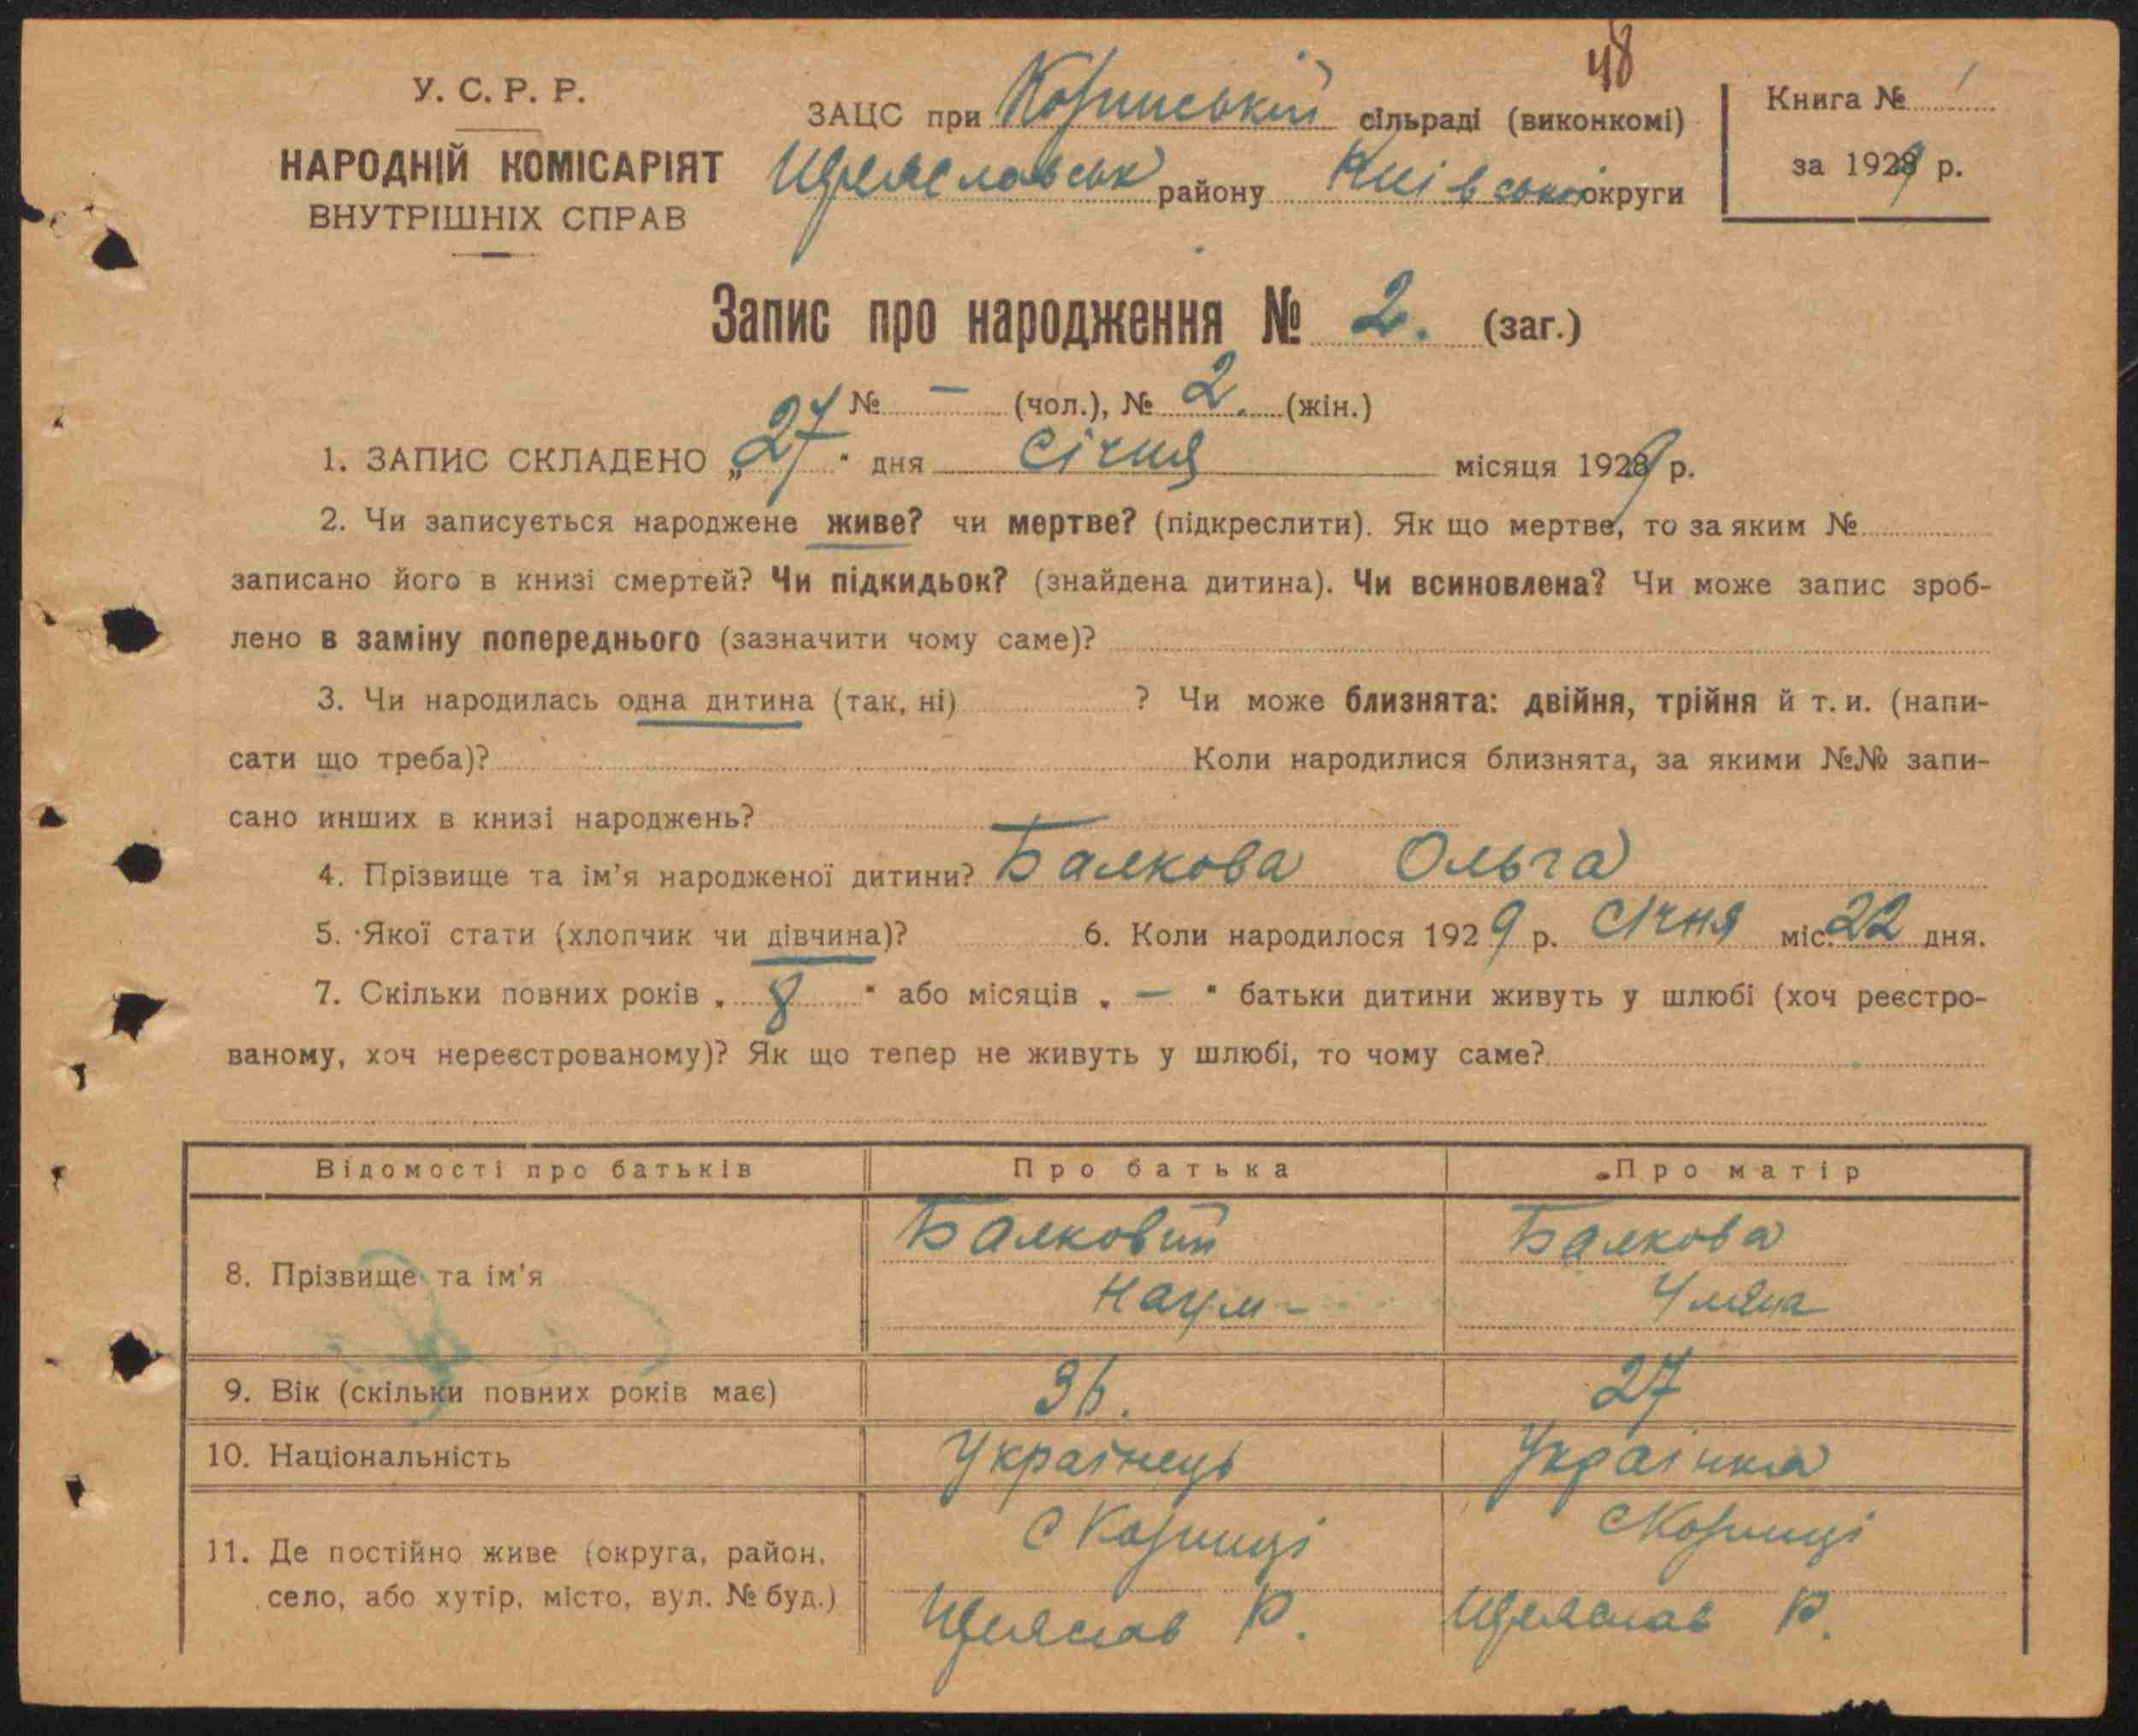 48
У. С. Р. Р.
НАРОДНІЙ КОМІСАРІЯТ
ВНУТРІШНІХ СПРАВ
ЗАЦС при сільраді (виконкомі)
району Київської округи
Книга № 1
за 1929 р.
Запис про народження № 2. (заг.)
№ — (чол.), № 2. (жін.)
1. ЗАПИС СКЛАДЕНО „27“ дня січня місяця 1929 р.
2. Чи записується народжене живе? чи мертве? (підкреслити). Як що мертве, то за яким №
записано його в книзі смертей? Чи підкидьок? (знайдена дитина). Чи всиновлена? Чи може запис зроб-
лено в заміну попереднього (зазначити чому саме)?
3. Чи народилась одна дитина (так, ні) ? Чи може близнята: двійня, трійня й т. и. (напи-
сати що треба)? Коли народилися близнята, за якими №№ запи-
сано инших в книзі народжень?
4. Прізвище та ім'я народженої дитини? Балкова Ольга
5. Якої стати (хлопчик чи дівчина)? 6. Коли народилося 1929 р. Січня міс. 22 дня.
7. Скільки повних років „ 8 “ або місяців „ — “ батьки дитини живуть у шлюбі (хоч реєстро-
ваному, хоч нереєстрованому)? Як що тепер не живуть у шлюбі, то чому саме?
Відомості про батьків Про батька Про матір
8. Прізвище та ім'я Балковий Балкова
Наум Уляна
9. Вік (скільки повних років має) 36. 27
10. Національність Українець Українка
11. Де постійно живе (округа, район,
село, або хутір, місто, вул. № буд.)
с с
Р. Р.